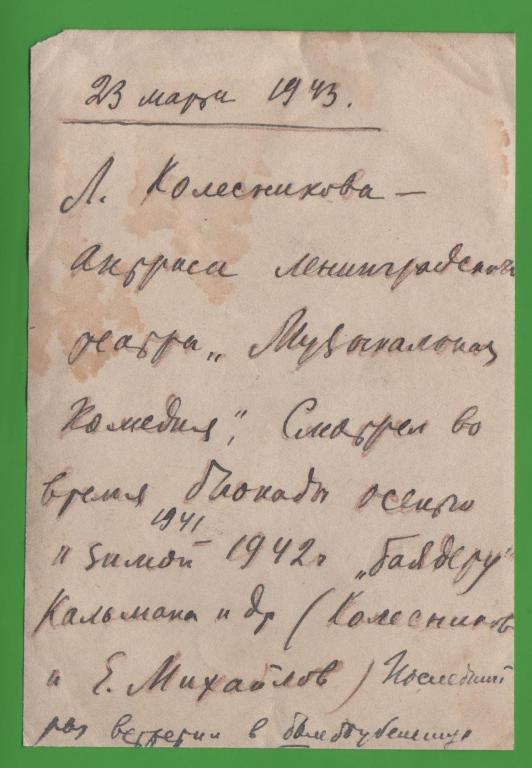 23 марта 1943.
Л. Колесникова —
актриса Ленинградского
театра „Музыкальная
Комедия“, Смотрел во
время блокады осенью
1941
и зимой 1942 г „Баядеру“
Кальмана и др (Колесников
и Е. Михайлов) Последний
раз встретил в бомбоубежище